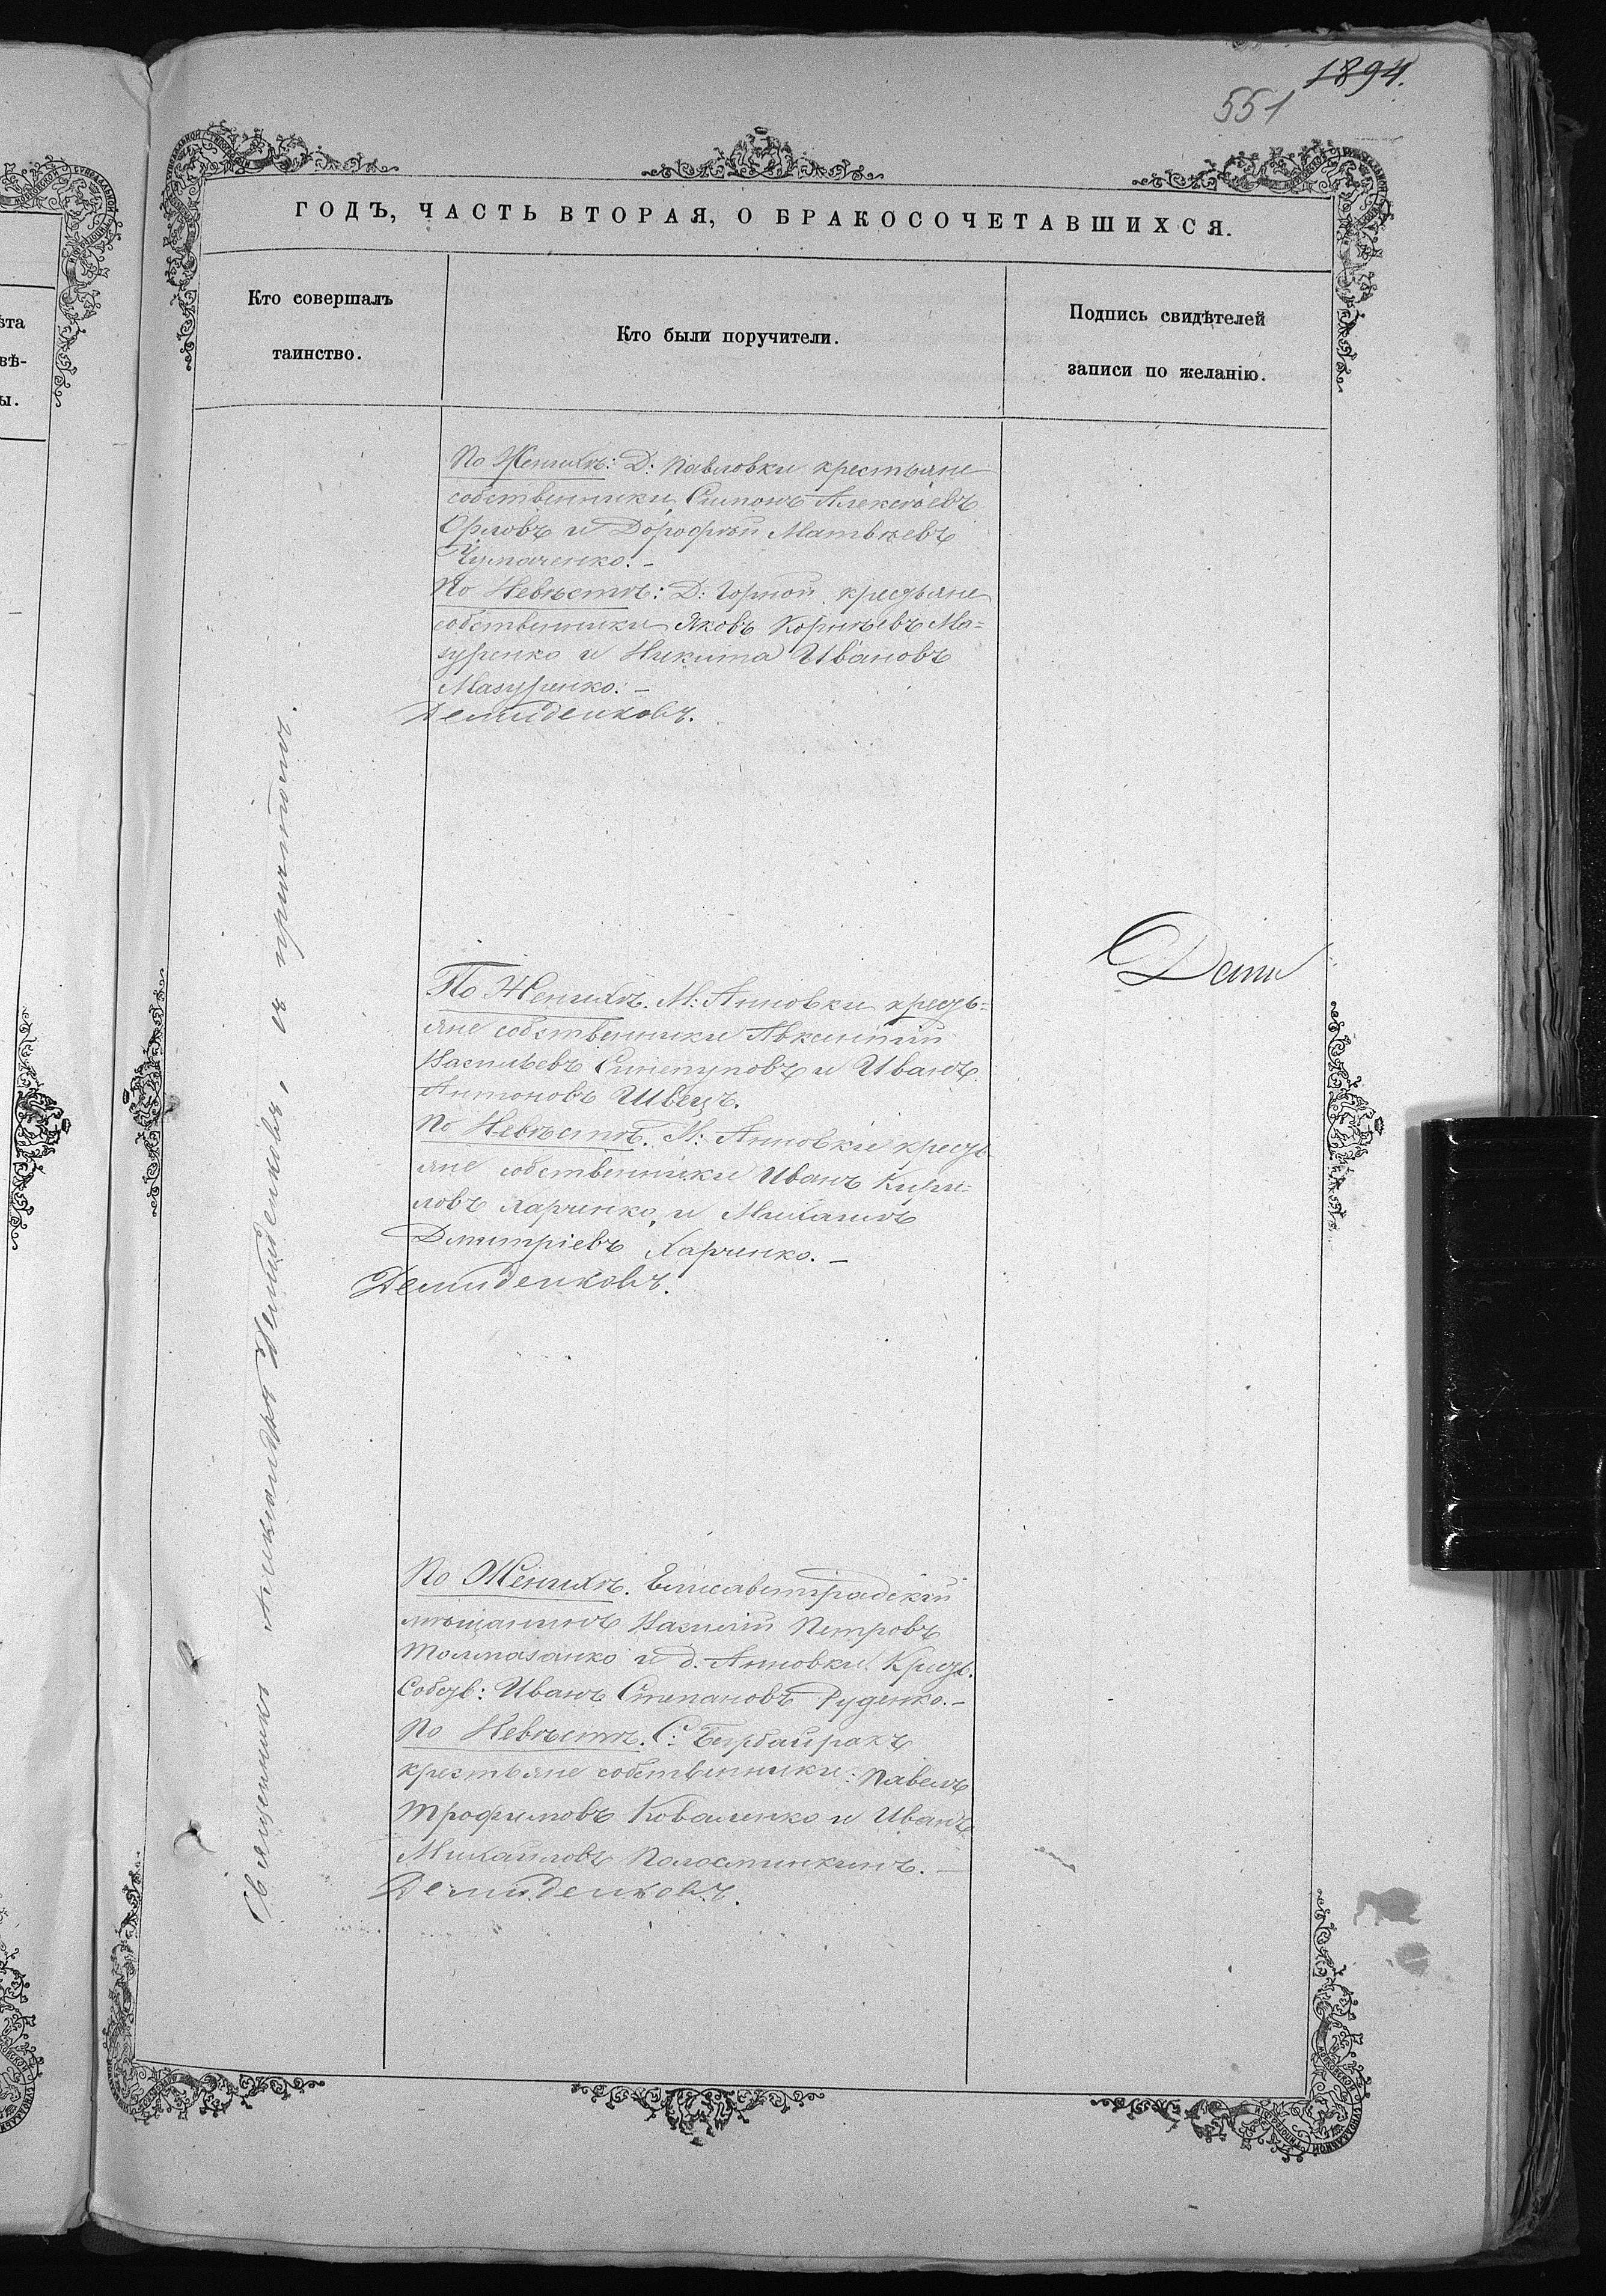 1894.
551
ГОДЪ, ЧАСТЬ ВТОРАЯ, О БРАКОСОЧЕТАВШИХСЯ.
Кто совершалъ
таинство.
Кто были поручители.
Подпись свидѣтелей
записи по желанію.
Священникъ Александръ Демиденковъ, съ причтомъ.
По Женихѣ: Д: Павловки крестьяне
собственники, Симонъ Алексѣевъ
Орловъ и Дорофѣй Матвѣевъ
Чумаченко. -
По Невѣстѣ: Д: Горной крестьяне
собственники Яковъ Корнѣевъ Ма=
зуренко и Никита Ивановъ
Мазуренко. -
Демиденковъ.
По Женихѣ. М: Анновки крест=
яне собственники Авксентій
Васильевъ и Иванъ
Антоновъ Швецъ.
По Невѣстѣ. М: Анновки крест
яне собственники Иванъ Кири=
ловъ Харченко, и Михаилъ
Дмитріевъ Харченко. -
Демиденковъ.
По Женихѣ. Елисаветградскій
мѣщанинъ Василій Петровъ
и д. Анновки Крест.
Собств: Иванъ Степановъ Руденко. -
По Невѣстѣ. С:
крестьяне собственники: Павелъ
Трофимовъ Коваленко и Иванъ
Михайловъ
Демиденковъ.
ѣта
вѣ-
ы.